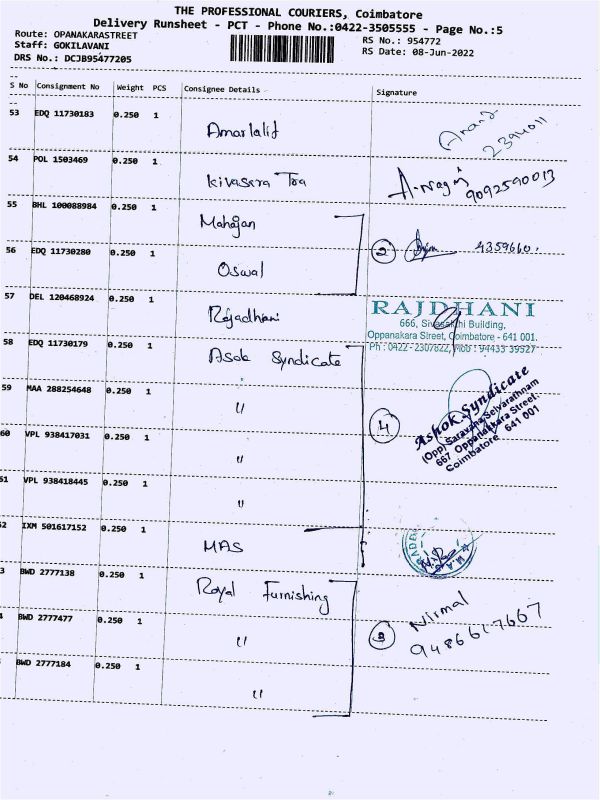 THE PROFESSIONAL COURIERS, Coimbatore
Delivery Runsheet - PCT - Phone No.:0422-3505555 - Page No.:5
Route: OPANAKARASTREET
RS No.: 954772
Staff: GOKILAVANI
RS Date: 08-Jun-2022
DRS No.: DCJB95477205
S No Consignment No Weight PCS Consignee Details Signature
53 EDQ 11730183 0.250 1 Amarlalit Anand 2394011
54 POL 1503469 0.250 1 Kivasera Tra A.Nagaj 9092590013
55 BHL 100088984 0.250 1 Mahajan
56 EDQ 11730280 0.250 1 Oswal 2 4359660.
57 DEL 120468924 0.250 1 Rajadhani
RAJDHANI
666, Sivasakthi Building,
Oppanakara Street, Coimbatore - 641 001.
Ph : 0422 - 2307622, Mob : 94433 39527
58 EDQ 11730179 0.250 1 Asok Syndicate
59 MAA 288254648 0.250 1 "
4
Ashok Syndicate
(Opp) Saravana Selvarathnam
667 Oppanakkara Street,
Coimbatore 641 001
60 VPL 938417031 0.250 1 "
61 VPL 938418445 0.250 1 "
52 IXM 501617152 0.250 1 MAS
3 BWD 2777138 0.250 1 Royal Furnishing
BWD 2777477 0.250 1 " 3 Nirmal 9486617667
BWD 2777184 0.250 1 "